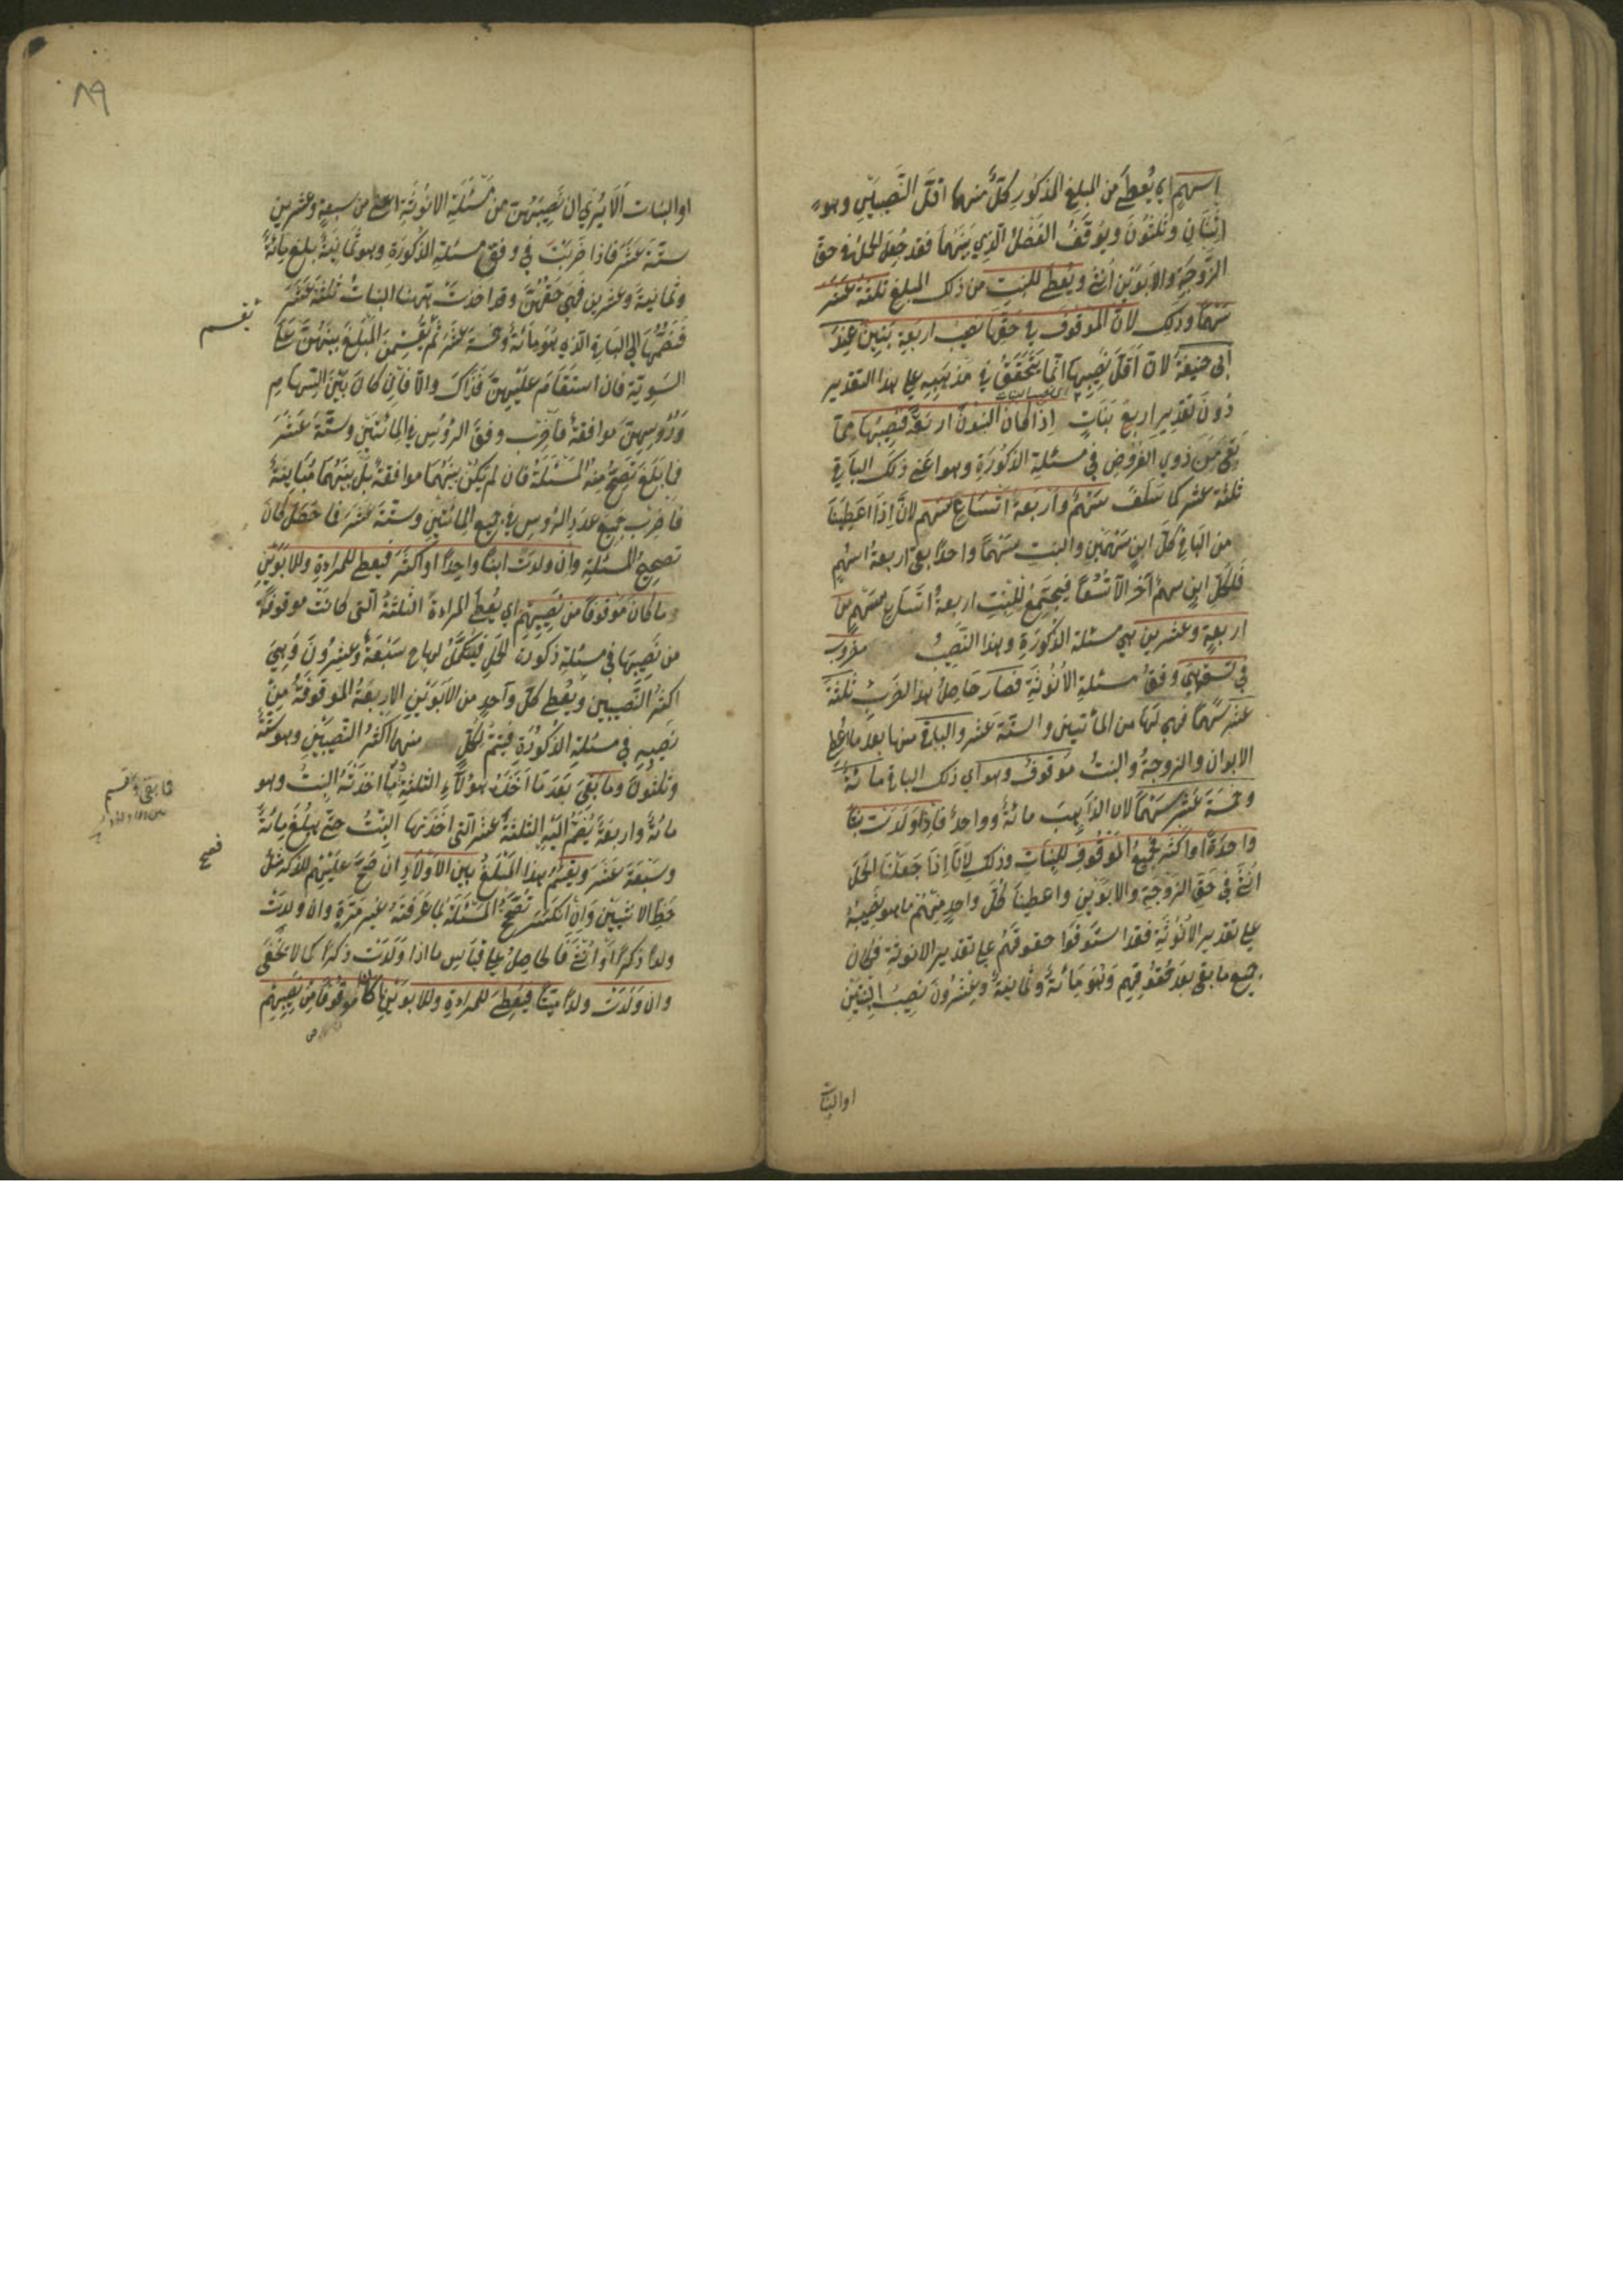 اسهم اي يُعطى من المبلغ المذكور كلٌّ منهما اقل النصيبين وهو
اثنان وثلثون ويوقف الفضل الذي بينهما فقد جعل الحمل في حق
الزوجة والابوين انثى ويعطى للبنت من ذلك المبلغ ثلثة عشر
سهما وذلك لان الموقوف في حقها نصيب اربعة بنين عند
ابى حنيفة لان اقل نصيبها انما يتحقق في مذهبه على هذا التقدير
دون تقدير اربع بنات اذا كان البنون اربعة فنصيبها مما
بقى من ذوي الفروض في مسئلة الذكورة وهو اعنى ذلك الباقي
ثلثة عشر كما سلف سهم واربعة اتساع سهم لانا اذا اعطينا
من الباقي كل ابن سهمين والبنت سهما واحدا بقى اربعة اسهم
فلكل ابن سهم آخر الا تسعا فيجتمع للبنت اربعة اتساع سهم من
اربعة وعشرين هي مسئلة الذكورة وهذا النصيب مضروب
في تسعة هي وفق مسئلة الانوثة فصار حاصل هذا الضرب ثلثة
عشر سهما فهي لها من المأتين والستة عشر والباقي منها بعد ما اعطى
الابوان والزوجة والبنت موقوف وهو اي ذلك الباقي مائة
وخمسة عشر سهما لان الذاهب مائة وواحد فاذا ولدت بنتا
واحدة او اكثر فجميع الموقوف للبنات وذلك لانا اذا جعلنا الحمل
انثى في حق الزوجة والابوين واعطينا كل واحد منهم ما هو نصيبه
على تقدير الانوثة فقد استوفوا حقوقهم على تقدير الانوثة فكان
جميع ما بقى بعد حقوقهم وهو مائة وثمانية وعشرون نصيب البنتين
او البنات
٨٩
او البنات الا يُرى ان نصيبهن من مسئلة الانوثة اعنى من سبعة وعشرين
ستة عشر فاذا ضربت في وفق مسئلة الذكورة وهو ثمانية بلغ مائة
وثمانية وعشرين فهي حقهن وقد اخذت ههنا البنات ثلثة عشر
فتضمها الى الباقي الذي هو مائة وخمسة عشر ثم يقسم المبلغ بينهن على
السوية فان استقام عليهن فذاك والا فان كان بين السهام
ورؤسهن موافقة فاضرب وفق الرؤس في المائتين وستة عشر
فما بلغ تصح منه المسئلة فان لم يكن بينهما موافقة بل بينهما مباينة
فاضرب جميع عدد الرؤس في جميع المائتين وستة عشر فما حصل كان
تصحيح المسئلة وان ولدت ابنا واحدا او اكثر فيعطى للمراءة وللابوين
ما كان موقوفا من نصيبهم اي يعطى المراءة الثلثة التي كانت موقوفة
من نصيبها في مسئلة ذكورة الحمل فيكمل لها سبعة وعشرون وهي
اكثر النصيبين ويعطى كل واحد من الابوين الاربعة الموقوفة من
نصيبه في مسئلة الذكورة فيتم لكل منهما اكثر النصيبين وهو ستة
وثلثون وما بقى بعد ما اخذت هؤلاء الثلثة مما اخذته البنت وهو
مائة واربعة يضم اليه الثلثة عشر التي اخذتها البنت حتى يبلغ مائة
وسبعة عشر ويقسم هذا المبلغ بين الاولاد ان صح عليهم للذكر مثل
حظ الانثيين وان انكسر تصحح المسئلة لما عرفته غير مرة وان ولدت
ولدا ذكرا او انثى فالحاصل على قياس ما اذا ولدت ذكرا كما لا يخفى
وان ولدت ولدا ميتا فيعطى للمراءة وللابوين ما كان موقوفا من نصيبهم
يقسم
فما بقى يقسم
فصح